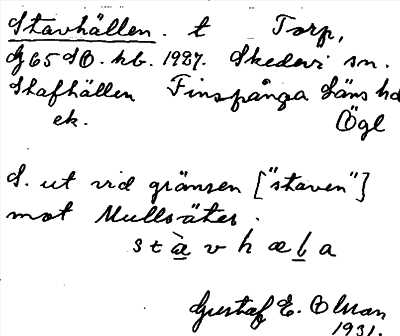 Stavhällen. t Torp,
G 65 SO. kb. 1927. Skedevi sn.
Stafhällen Finspånga läns hd
ek. Ögl
S. ut vid gränsen ["staven"]
mot Mullsäter.
s t à v h æ l a
Gustaf E. Olsson
1931.